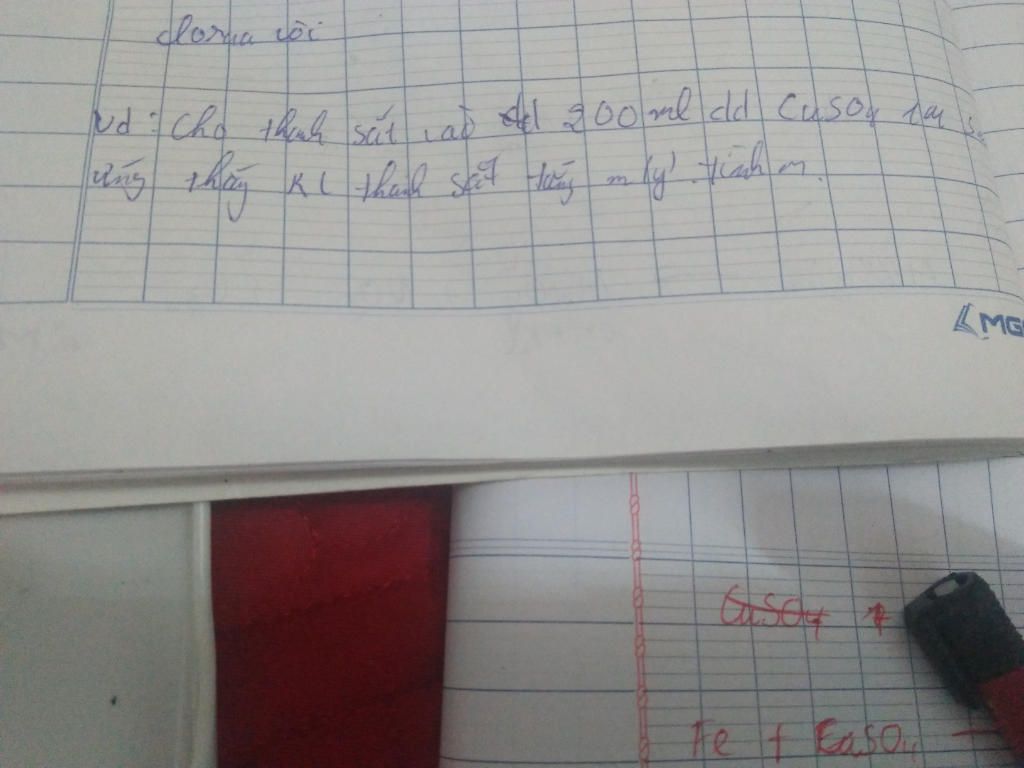 Vd: Cho thanh sắt vào dd 200ml dd CuSO4 sau
ứng thấy KL thanh sắt tăng m (g). tính m.
MG
CuSO4 +
Fe + CuSO4